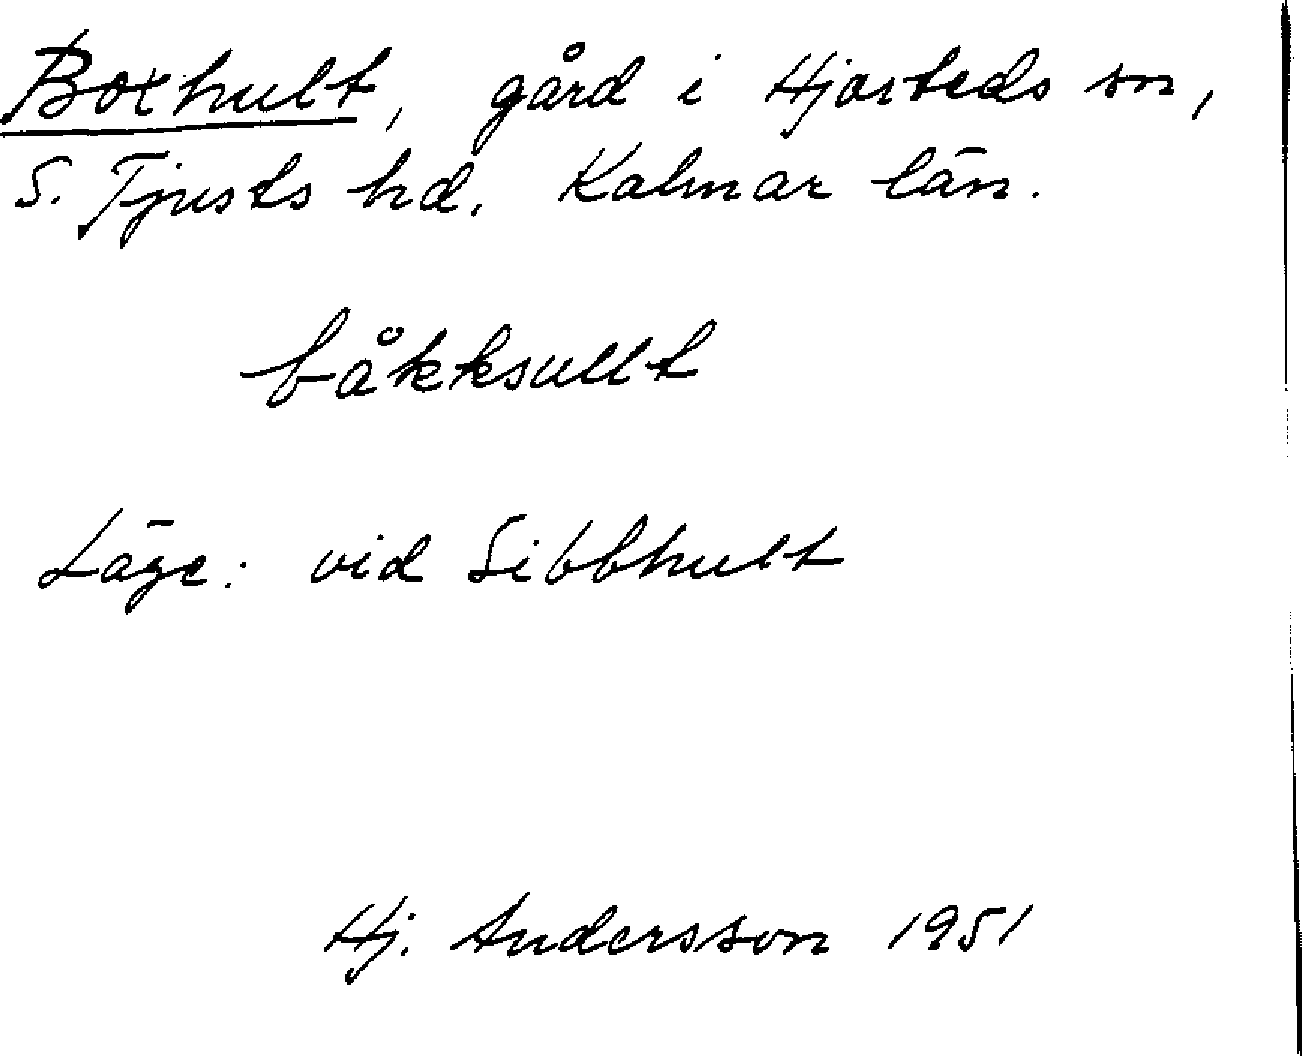 Boxhult, gård i Hjorteds sn,
S. Tjusts hd. Kalmar län.
båkksullt
Läge: vid Sibbhult
Hj. Andersson 1951